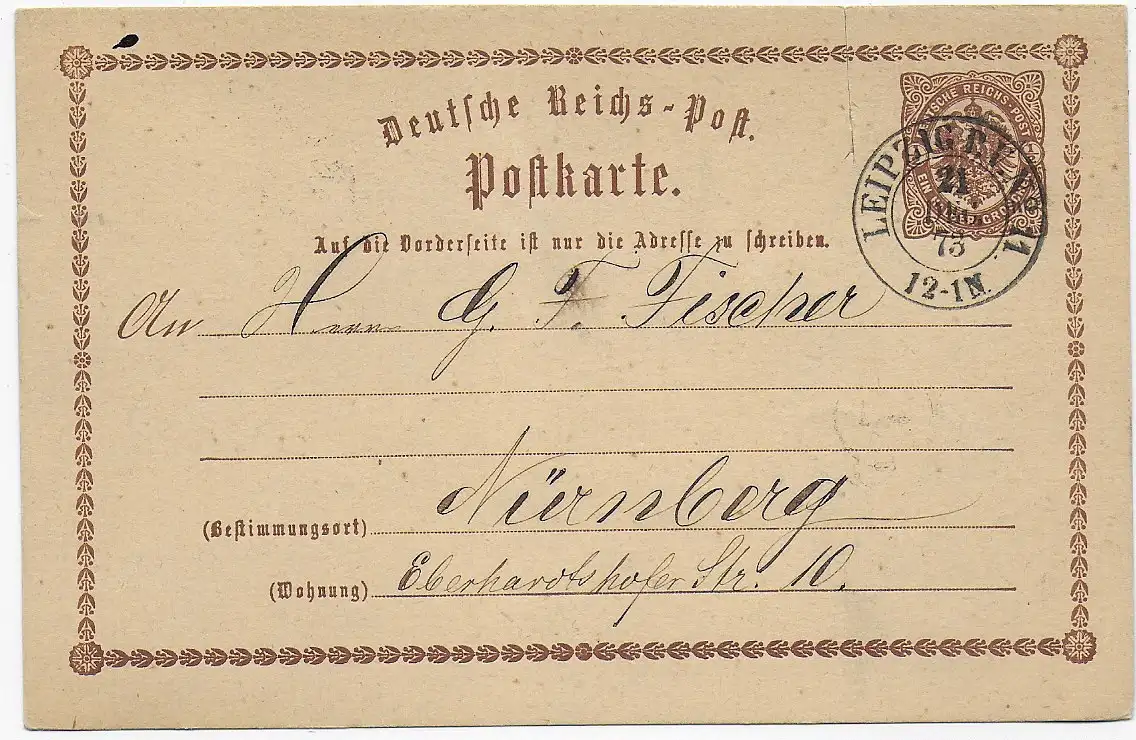 Deutsche Reichs-Post.
Postkarte.
DEUTSCHE REICHS-POST
EIN GROSCHEN
LEIPZIG P.V. № 11
21
73
12-1N.
Auf die Vorderseite ist nur die Adresse zu schreiben.
An Herrn G. F. Fischer
Nürnberg
(Bestimmungsort)
Eberhardtshofer Str. 10.
(Wohnung)